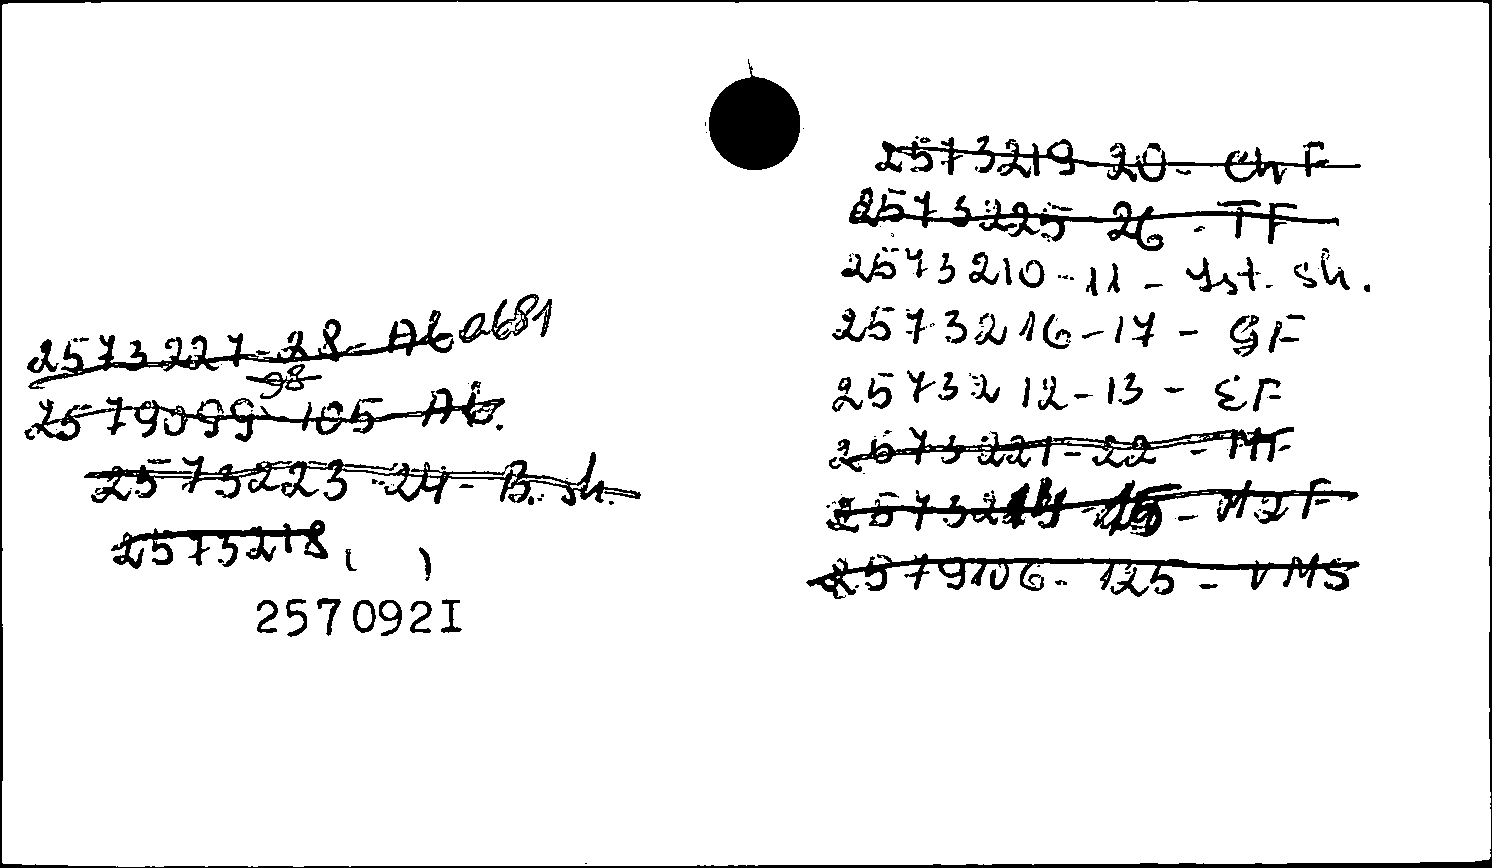 2573227-28-Ab 0681
98
2579099-105-Ab.
2573223-24-B.sh.
2573218
257092I
2573219-20-ChF
2573225-26-TF
2573210-11-Yst. sh.
2573216-17-GF
2573212-13-EF
2573221-22-MF
2573214-15-MJF
2579106-125-VMS